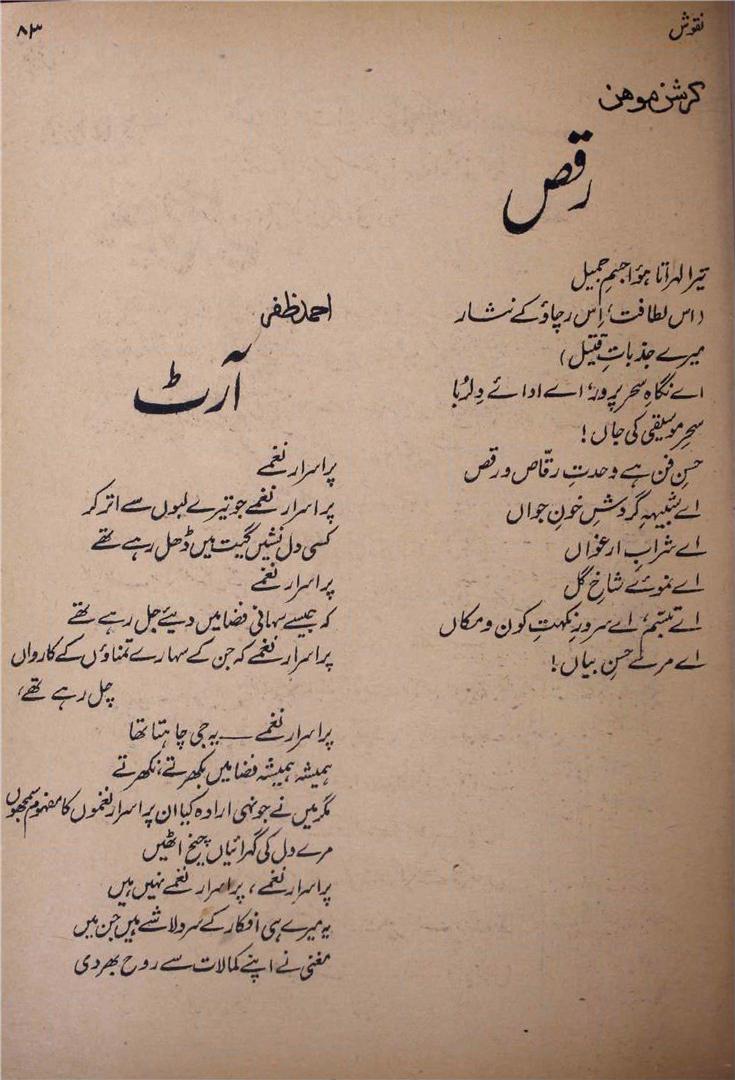 نقوش
۸۳
کرشن موہن
رقص
تیرا لہراتا ہؤا جسمِ جمیل
(اس لطافت، اِس رچاؤ کے نثار
میرے جذباتِ قتیل)
اے نگاہِ سحر پرور، اے ادائے دِلرُبا
سحرِ موسیقی کی جاں!
حسنِ فن ہے وحدتِ رقّاص و رقص
اے شبیہہِ گردشِ خونِ جواں
اے شرابِ ارغواں
اے نموئے شاخِ گل
اے تبسّم، اے سرورِ نکہتِ کون و مکاں
اے مرے حسنِ بیاں!
احمد ظفر
آرٹ
پراسرار نغمے
پراسرار نغمے جو تیرے لبوں سے اتر کر
کسی دل نشیں گیت میں ڈھل رہے تھے
پراسرار نغمے
کہ جیسے سہانی فضا میں دیئے جل رہے تھے
پراسرار نغمے کہ جن کے سہارے تمناؤں کے کارواں
چل رہے تھے،
پراسرار نغمے — یہ جی چاہتا تھا
ہمیشہ ہمیشہ فضا میں بکھرتے، نکھرتے
مگر میں نے جونہی ارادہ کیا ان پراسرار نغموں کا مفہوم سمجھوں
مرے دل کی گہرائیاں چیخ اٹھیں
پراسرار نغمے، پراسرار نغمے نہیں ہیں
یہ میرے ہی افکار کے سرد لاشے ہیں جن میں
مغنی نے اپنے کمالات سے روح بھر دی